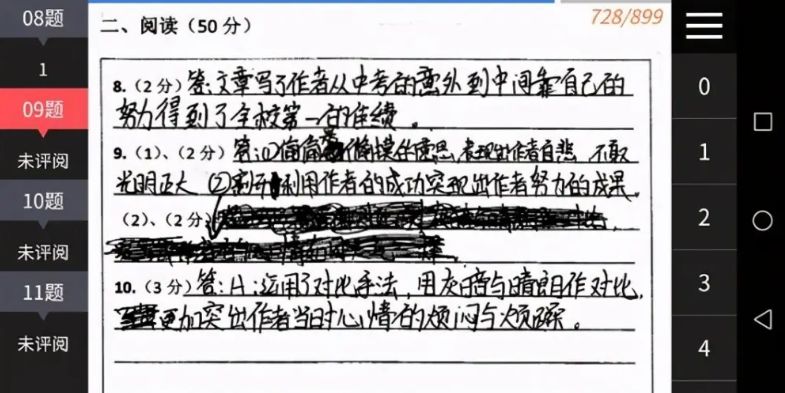 08题
1
09题
未评阅
10题
未评阅
11题
未评阅
二、阅读（50 分）
728/899
8.（2 分）答:文章写了作者从中考的意外到中间靠自己的
努力得到了全校第一的佳绩。
9.（1）、（2 分）答:①偷偷 偷摸的意思,表现出作者自悲,不敢
光明正大 ② 利用作者的成功突现出作者努力的成果。
（2）、（2 分）
10.（3 分）答:H:运用了对比手法,用灰暗与晴朗作对比,
更加突出作者当时心情的烦闷与烦躁。
0
1
2
3
4